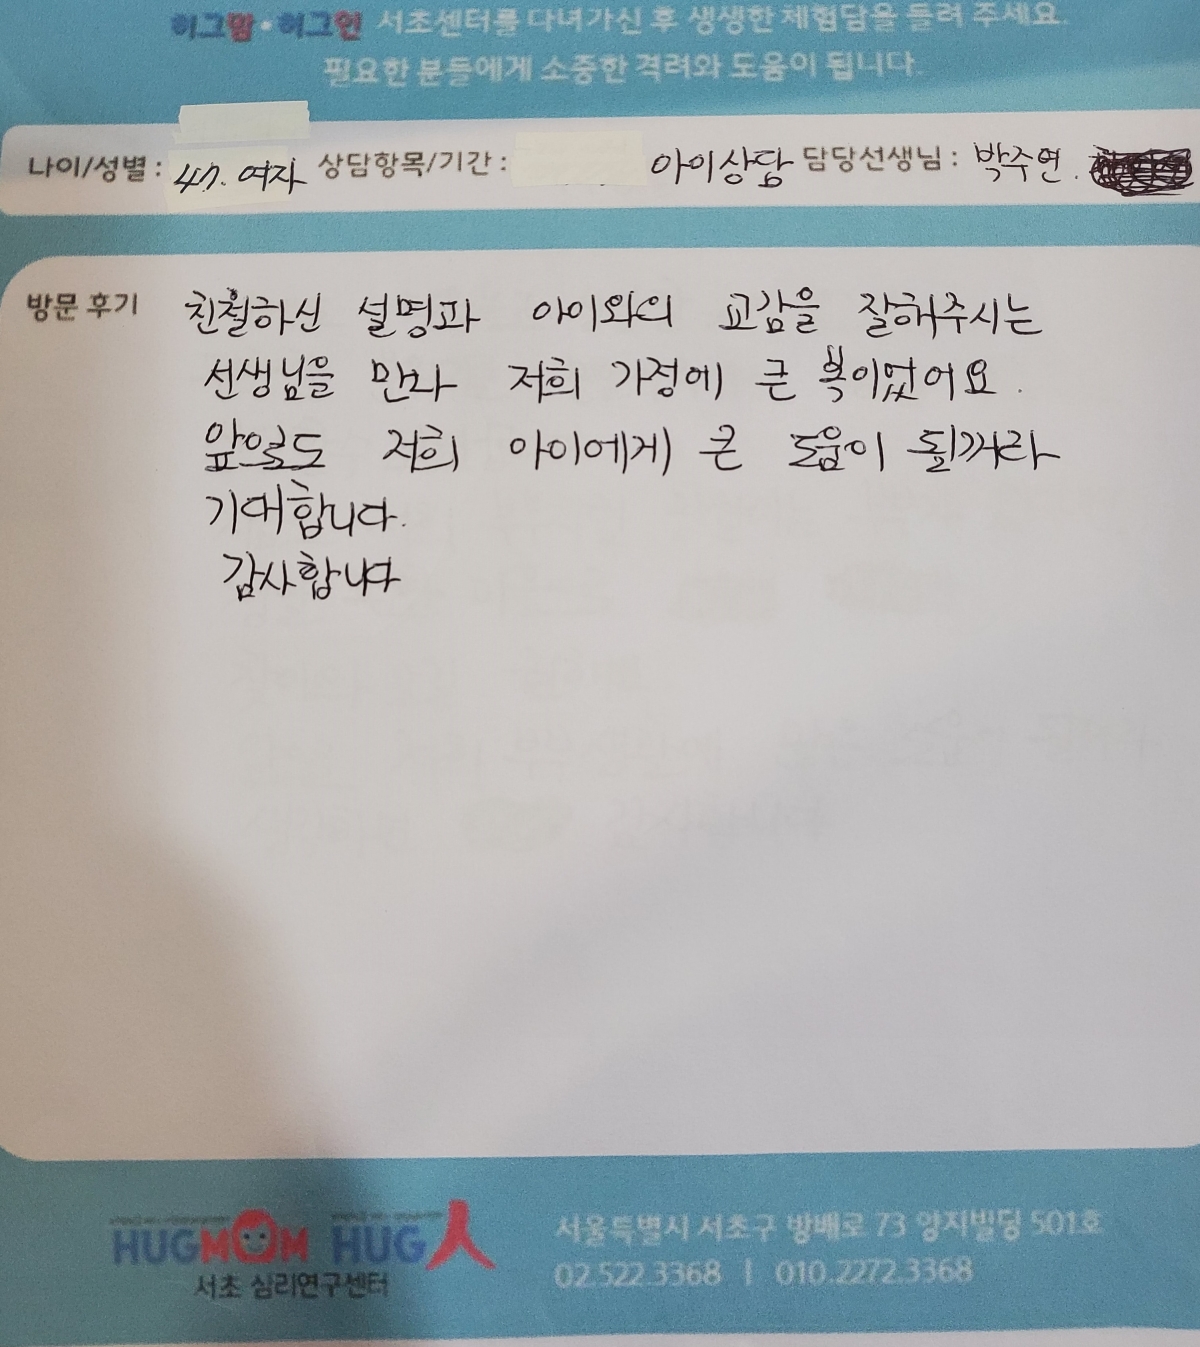 허그맘·허그인 서초센터를 다녀가신 후 생생한 체험담을 들려 주세요.
필요한 분들에게 소중한 격려와 도움이 됩니다.
나이/성별 : 47. 여자 상담항목/기간 : 아이상담 담당선생님 : 박주연.
방문 후기 친철하신 설명과 아이와의 교감을 잘해주시는
선생님을 만나 저희 가정에 큰 복이었어요.
앞으로도 저희 아이에게 큰 도움이 될꺼라
기대합니다.
감사합니다
HUGMOM HUG人
서초 심리연구센터
서울특별시 서초구 방배로 73 양지빌딩 501호
02.522.3368 | 010.2272.3368